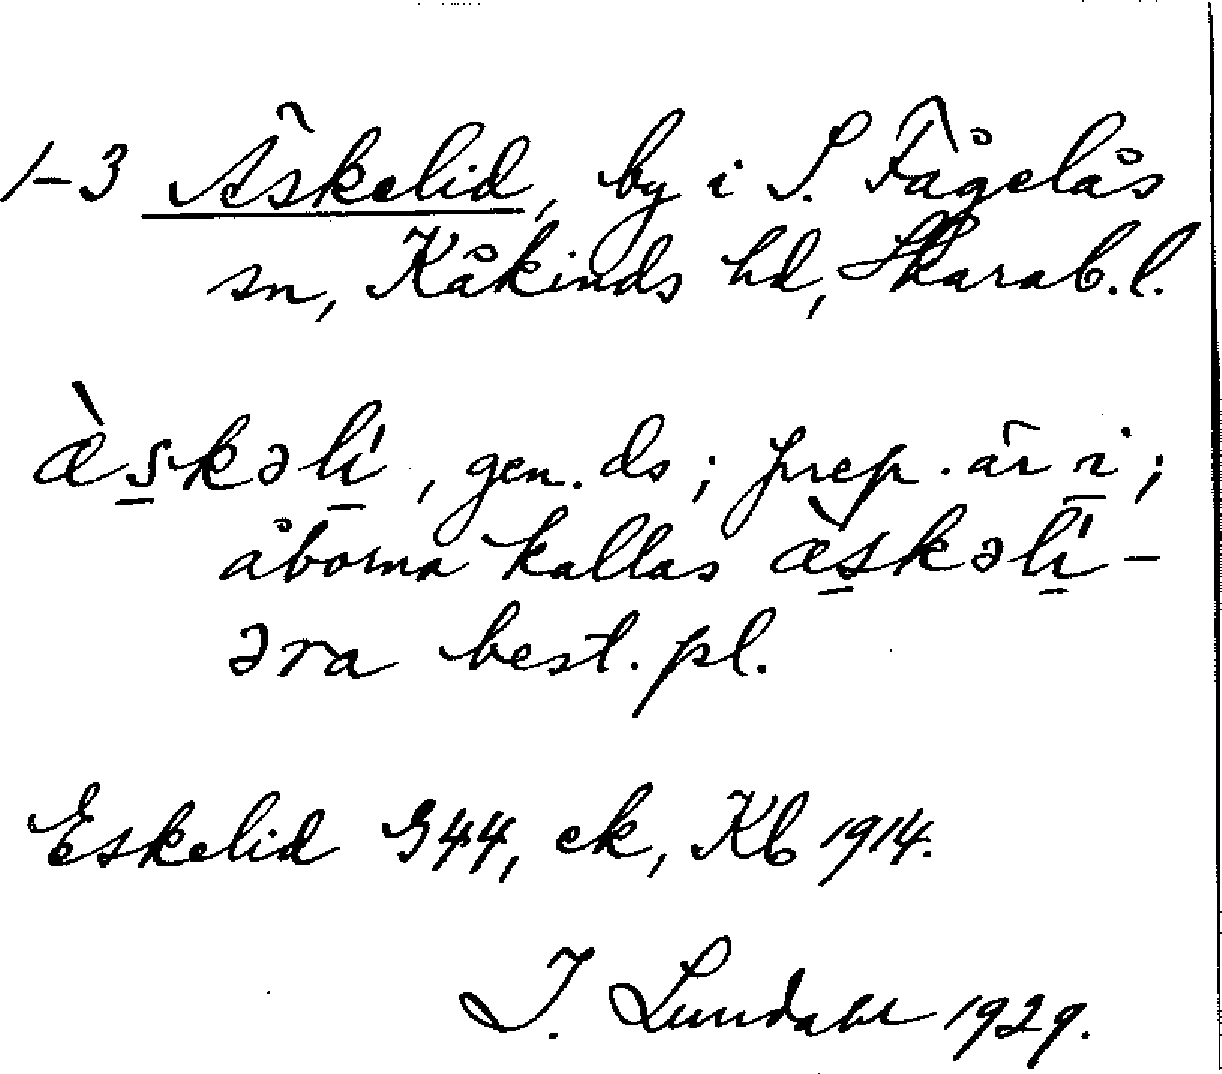 1-3 Äskelid, by i S. Fågelås
sn, Kåkinds hd, Skarab.l.
æ̀s̠kəlí̠, gen. ds; prep. är i̠;
åborna kallas æ̀s̠kəlí̠-
əra best. pl.
Eskelid G44, ek, Kb 1914.
I. Lundahl 1929.